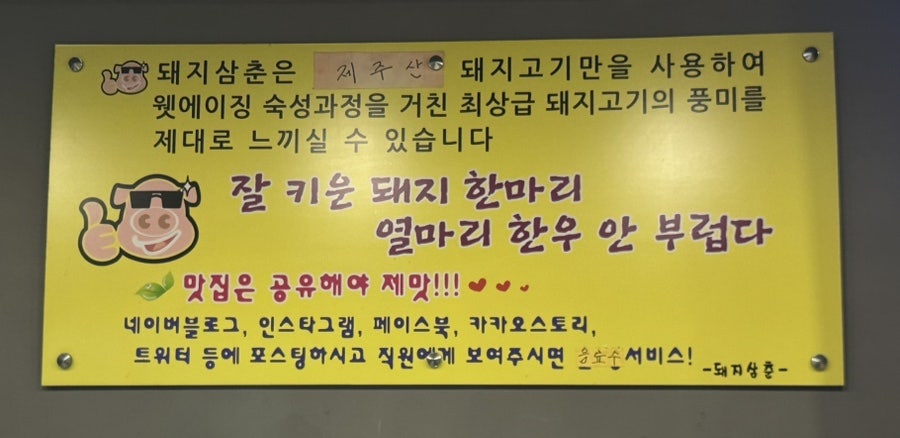 돼지삼춘은 제주산 돼지고기만을 사용하여
웻에이징 숙성과정을 거친 최상급 돼지고기의 풍미를
제대로 느끼실 수 있습니다
잘 키운 돼지 한마리
열마리 한우 안 부럽다
맛집은 공유해야 제맛!!!
네이버블로그, 인스타그램, 페이스북, 카카오스토리,
트위터 등에 포스팅하시고 직원에게 보여주시면 음료수서비스!
-돼지삼춘-